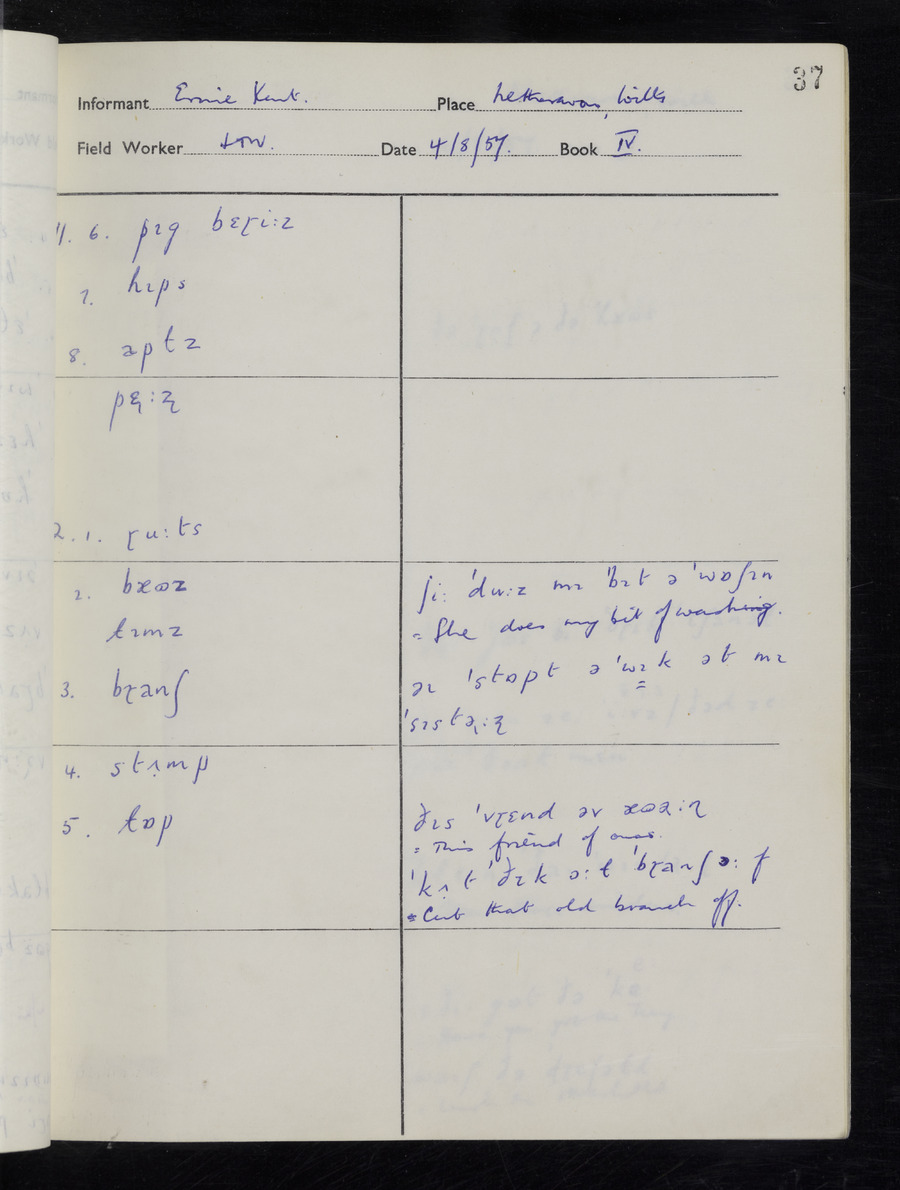 37
Informant Ernie Kent. Place Netheravon, Wilts
Field Worker Date 4/8/57. Book IV.
11. 6. pɪg bɛɽi:z
7. hɪps
8. æptz
pɛ̨:ɽ
2. 1. ɽu:ts
2. bæʊz
tɪmz
3. bɽanʃ
4. stʌ̣mp
5. tɒp
ʃi: 'du:z mɪ 'bɪt ə 'wɒʃɪn
= She does my bit of washing.
əɪ 'stɒpt ə 'wɪk ət mɪ
'sɪstə:ɽ
ðɪs 'vɽɛnd əv
= This friend of ours.
'kʌ̣t 'ðɪk ɔ:ɫ 'bɽanʃ ɔ:f
= Cut that old branch off.